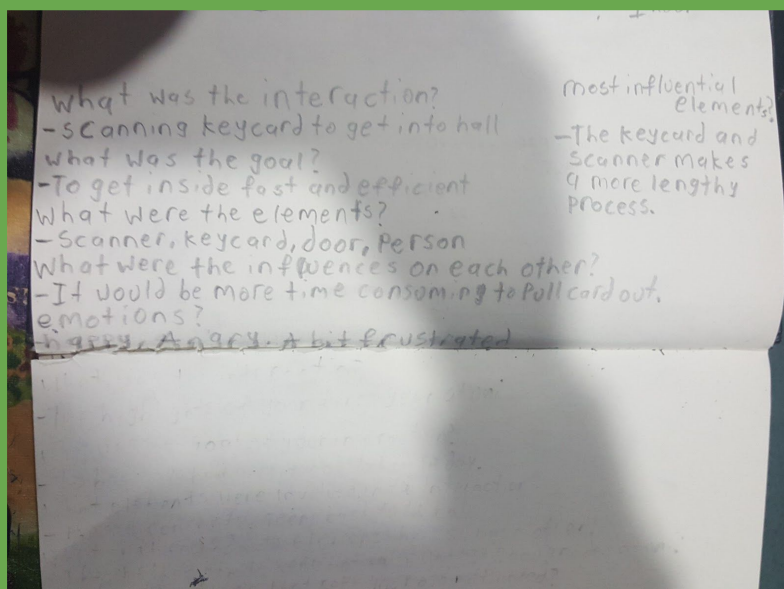 What was the interaction?
-scanning keycard to get into hall
What was the goal?
-To get inside fast and efficient
What were the elements?
-Scanner, keycard, door, Person
What were the influences on each other?
-It would be more time consuming to Pull card out.
emotions?
-happy, Angry. A bit frustrated
most influential
elements?
-The keycard and
scanner makes
a more lengthy
process.